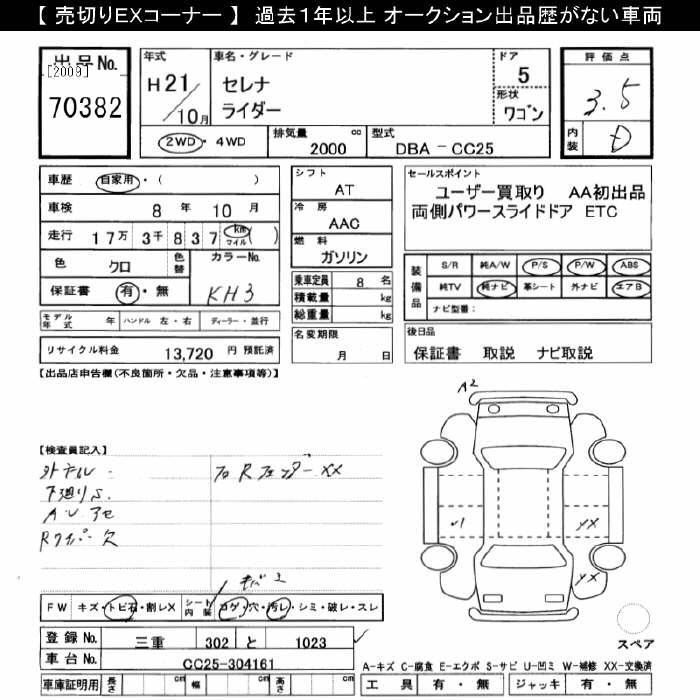 【 売切りEXコーナー 】 過去1年以上 オークション出品歴がない車両
出品No. [2009] 70382
年式 H21/10月
車名・グレード セレナ ライダー
ドア 5
形状 ワゴン
評価点 3.5
内装 D
2WD・4WD
排気量 2000 cc
型式 DBA-CC25
車歴 自家用・( )
車検 8年 10月
走行 17万 3千 837 (km マイル)
色 クロ 色替
カラーNo. KH3
保証書 有・無
モデル年式 年 ハンドル 左・右 ディーラー・並行
リサイクル料金 13,720 円 預託済
シフト AT
冷房 AAC
燃料 ガソリン
乗車定員 8 名
積載量 kg
総重量 kg
名変期限 月 日
セールスポイント
ユーザー買取り AA初出品
両側パワースライドドア ETC
装備品 S/R 純A/W P/S P/W ABS
純TV 純ナビ 革シート 外ナビ エアB
ナビ型番:
後日品
保証書 取説 ナビ取説
【出品店申告欄(不良箇所・欠品・注意事項等)】
A2
【検査員記入】
下廻りS.
XX
√1 XX
XX
FW キズ・トビ石・割レX シート内装 コゲ・穴・汚レ・シミ・破レ・スレ
登録No. 三重 302 と 1023
車台No. CC25-304161
スペア
A-キズ C-腐食 E-エクボ S-サビ U-凹ミ W-補修 XX-交換済
車庫証明用 長さ cm 幅 cm 高さ cm
工具 有・無 ジャッキ 有・無